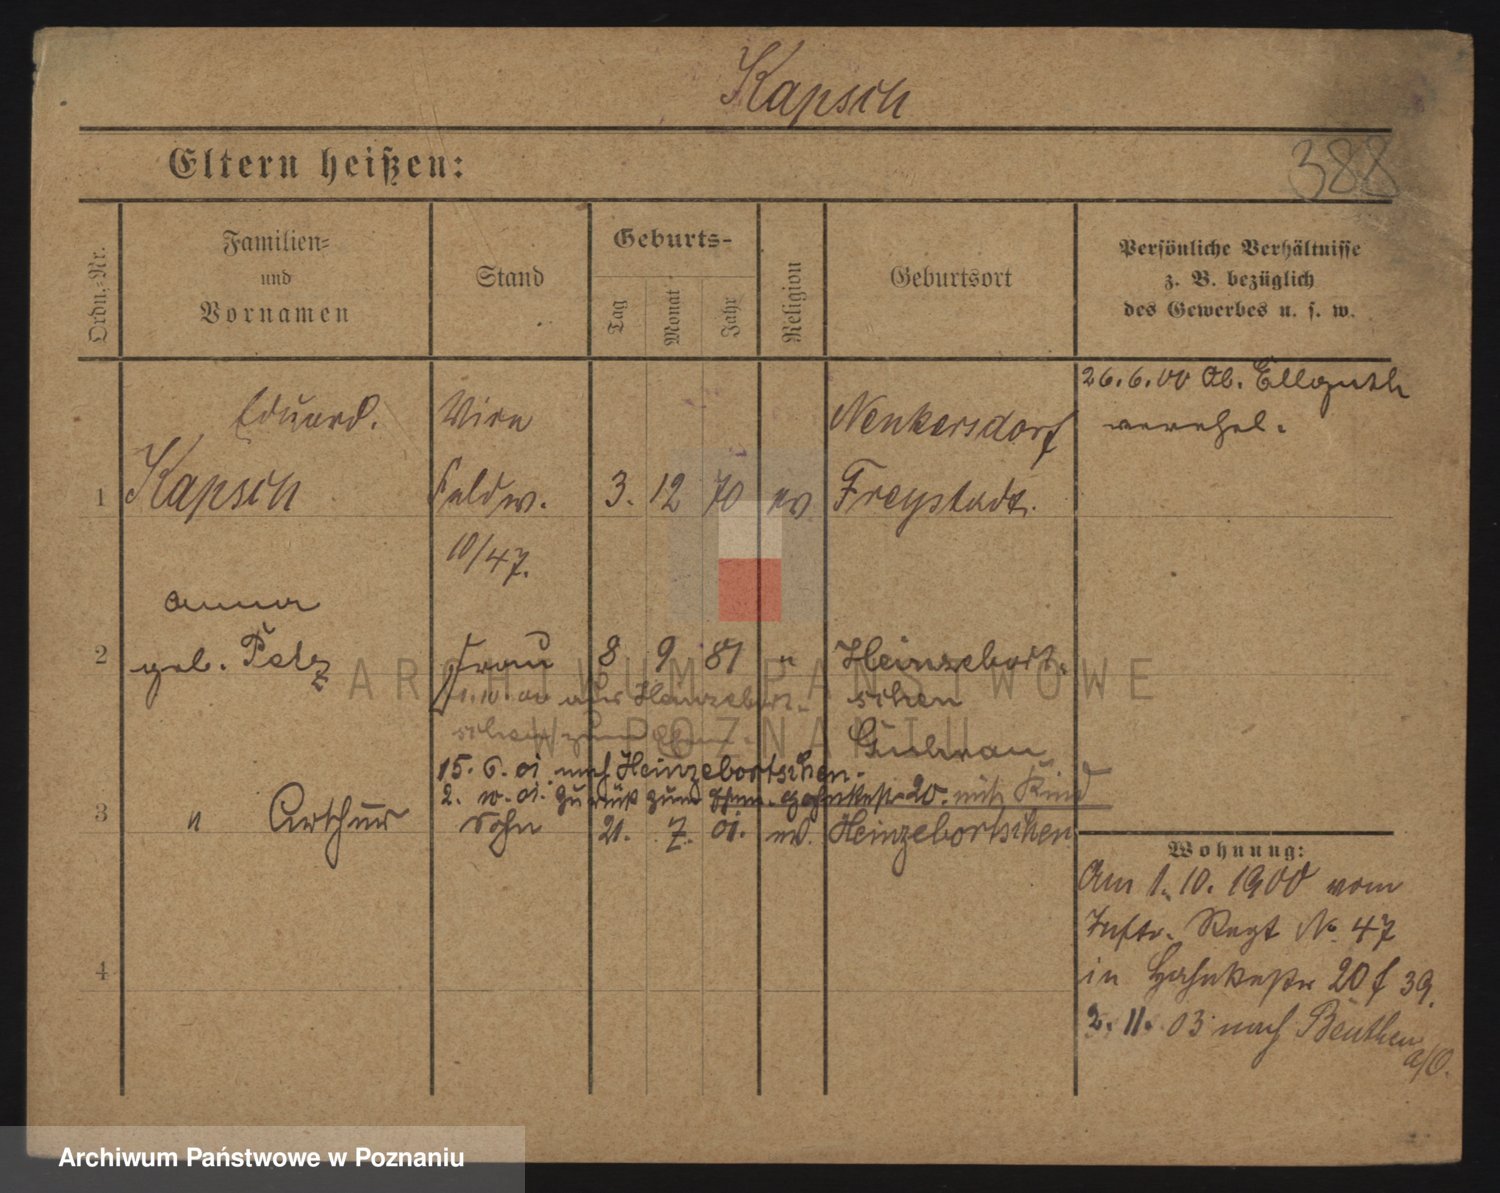 Kapsch
Eltern heißen:
388
Ordn.-Nr.
Familien-
und
Vornamen
Stand
Geburts-
Tag
Monat
Jahr
Religion
Geburtsort
Persönliche Verhältnisse
z. B. bezüglich
des Gewerbes u. s. w.
26.6.00 Ob. Ellguth
verehel.
Eduard.
Neukersdorf
1 Kapsch Feldw. 3. 12 70 ev Freystadt.
10/47.
Anna
2 geb. Pelz Frau 8 9 81 " Heinzebort-
schen
Guhrau
15. 6. 01 nach Heinzebortschen.
2. 10. 01. zurück zum 20. mit Kind
3 " Arthur Sohn 21. 7. 01. ev. Heinzebortschen
4
Wohnung:
Am 1. 10. 1900 vom
Inftr. Regt No. 47
in 20 f 39.
2. 11. 03 nach Beuthen
a/O.
ARCHIWUM PAŃSTWOWE
W POZNANIU
Archiwum Państwowe w Poznaniu